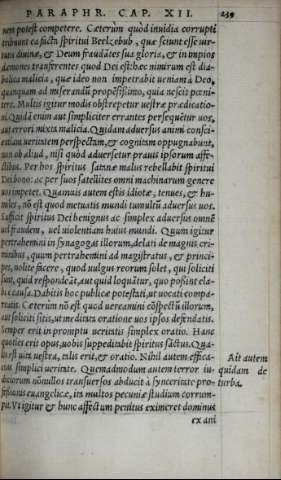 PARAPHR. CAP. XII. 239
nem potest competere. Cæterùm quòd inuidia corrupti
tribuunt ea facta spiritui Beelzebub, quæ sciunt esse uir-
tutis diuinæ, & Deum fraudātes sua gloria, & in impios
dæmones transferentes quod Dei est: hæc nimirum est dia-
bolica malicia, quæ ideo non impetrabit ueniam à Deo,
quanquam ad miserandū propēsissimo, quia nescit pœni-
tere. Multis igitur modis obstrepetur uestræ prædicatio-
ni. Quidā enim aut simpliciter errantes persequētur uos,
aut errori mixta malicia. Quidam aduersus animi consci-
entiam ueritatem perspectam, & cognitam oppugnabunt,
non ob aliud, nisi quòd aduersetur prauis ipsorum affe-
ctibus. Per hos spiritus satanæ malus rebellabit spiritui
Dei bono: ac per suos satellites omni machinarum genere
uos impetet. Quamuis autem estis idiotæ, tenues, & hu-
miles, nō est quod metuatis mundi tumultū aduersus uos.
Sufficit spiritus Dei benignus ac simplex aduersus omnē
uel fraudem, uel uiolentiam huius mundi. Quum igitur
pertrahemini in synagogas illorum, delati de magnis cri-
minibus, quum pertrahemini ad magistratus, & princi-
pes, nolite facere, quod uulgus reorum solet, qui soliciti
sint, quid respondeāt, aut quid loquātur, quo possint ela-
bi è causa. Dabitis hoc publicæ potestati, ut uocati compa-
reatis. Cæterum nō est quòd uereamini cōspectū illorum,
aut soliciti sitis, ut meditata oratione uos ipsos defendatis.
Semper erit in promptu ueritatis simplex oratio. Hanc
quoties erit opus, uobis suppeditabit spiritus sāctus. Qua-
lis est uita uestra, talis erit, & oratio. Nihil autem effica-
cius simplici ueritate. Quemadmodum autem terror iu-
diciorum nōnullos transuersos abducit à synceritate pro-
fessionis euangelicæ, ita multos pecuniæ studium corrum-
pit. Vt igitur & hunc affectum penitus eximeret dominus
ex ani
Ait autem
quidam de
turba.